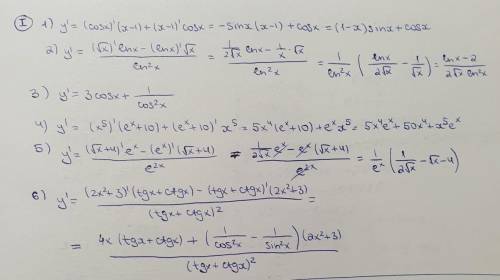 I 1) y' = (cosx)'(x-1)+(x-1)'cosx = -sinx(x-1)+cosx = (1-x)sinx+cosx
2) y' = ((√x)'lnx-(lnx)'√x)/ln²x = (1/(2√x) lnx - 1/x·√x)/ln²x = 1/ln²x (lnx/(2√x) - 1/√x) = (lnx-2)/(2√x ln²x)
3) y' = 3cosx + 1/cos²x
4) y' = (x⁵)'(eˣ+10)+(eˣ+10)'x⁵ = 5x⁴(eˣ+10)+eˣx⁵ = 5x⁴eˣ+50x⁴+x⁵eˣ
5) y' = ((√x+4)'eˣ-(eˣ)'(√x+4))/e²ˣ = (1/(2√x) eˣ - eˣ(√x+4))/e²ˣ = 1/eˣ (1/(2√x) - √x - 4)
6) y' = ((2x²+3)'(tgx+ctgx)-(tgx+ctgx)'(2x²+3))/(tgx+ctgx)² =
= (4x(tgx+ctgx)+(1/cos²x - 1/sin²x)(2x²+3))/(tgx+ctgx)²